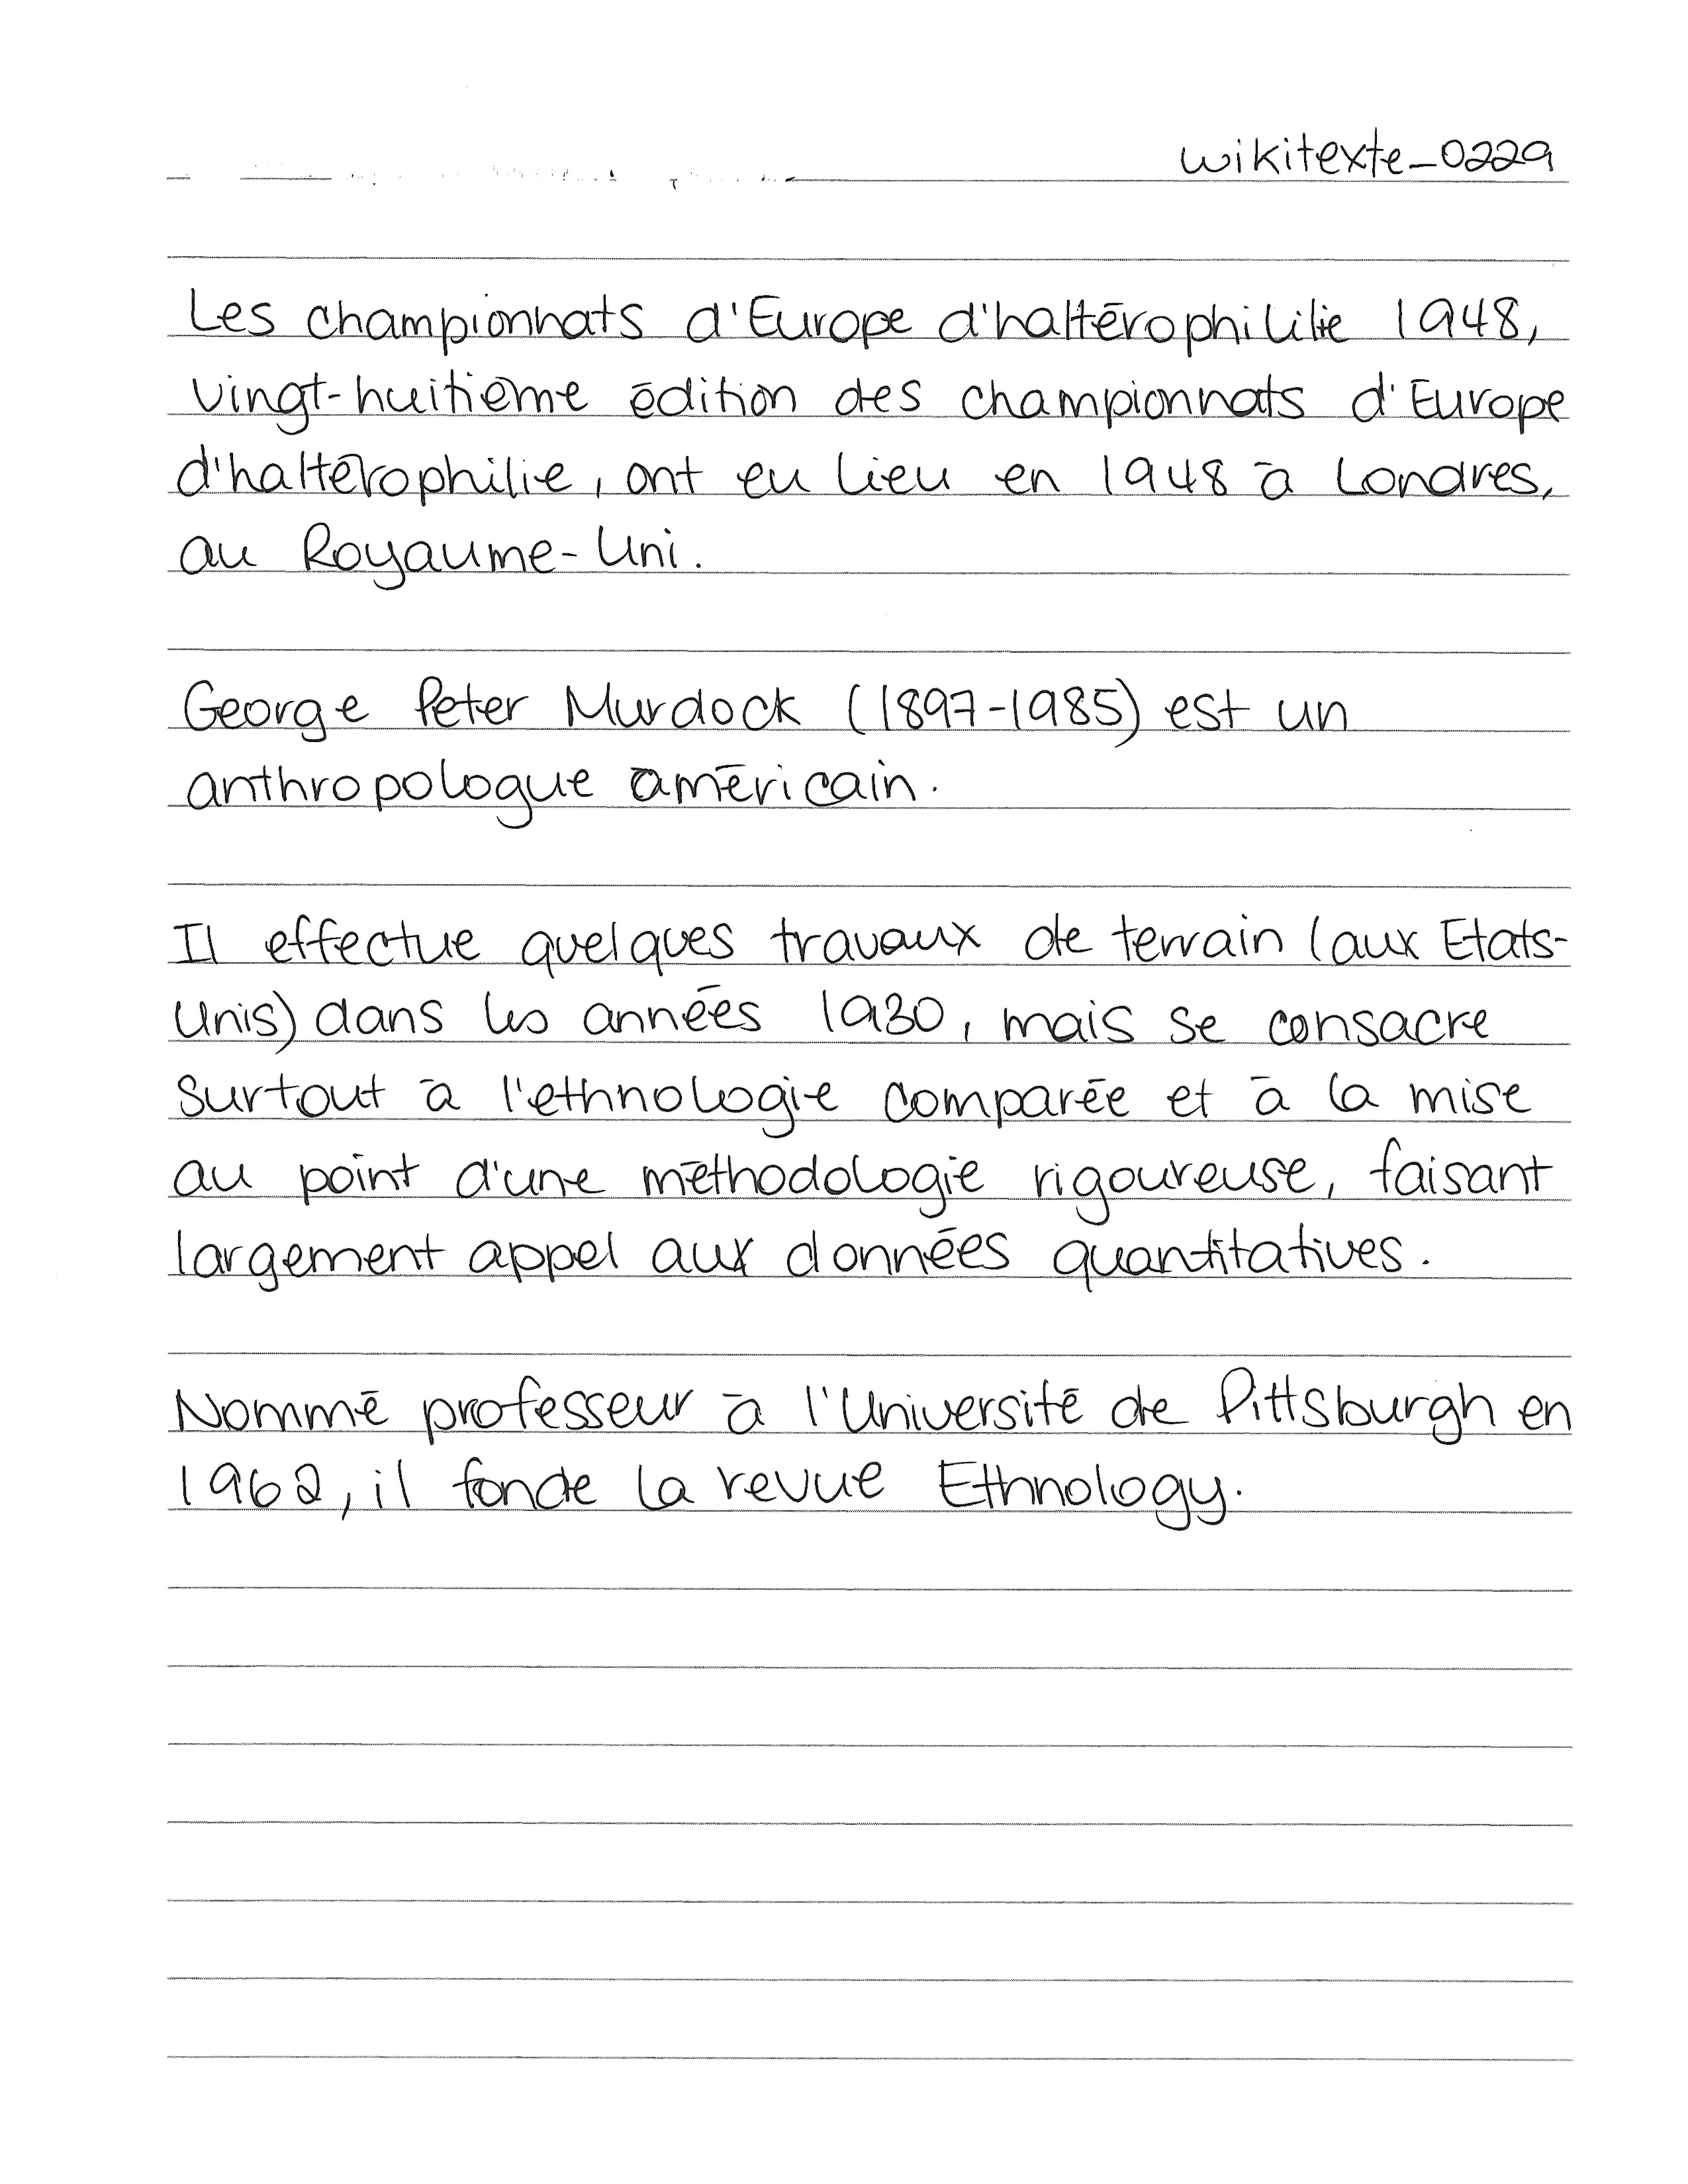 wikitexte_0229
Les championnats d'Europe d'haltérophililie 1948,
vingt-huitième édition des championnats d'Europe
d'haltérophilie, ont eu lieu en 1948 à Londres,
au Royaume-Uni.
George Peter Murdock (1897-1985) est un
anthropologue américain.
Il effectue quelques travaux de terrain (aux Etats-
Unis) dans les années 1930, mais se consacre
surtout à l'ethnologie comparée et à la mise
au point d'une méthodologie rigoureuse, faisant
largement appel aux données quantitatives.
Nommé professeur à l'Université de Pittsburgh en
1962, il fonde la revue Ethnology.